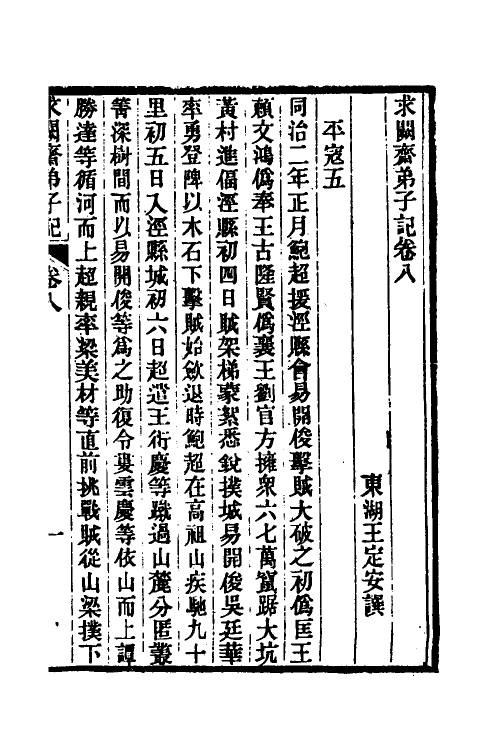 求闕齋弟子記卷八
東湖王定安譔
平寇五
同治二年正月鮑超援涇縣會易開俊擊賊大破之初偽匡王
賴文鴻偽奉王古隆賢偽襄王劉官方擁衆六七萬竄踞大坑
黃村進偪涇縣初四日賊架梯蒙絮悉銳撲城易開俊吳廷華
率勇登陴以木石下擊賊始斂退時鮑超在高祖山疾馳九十
里初五日入涇縣城初六日超遣王衍慶等蹴過山麓分匿叢
箐深樹間而以易開俊等為之助復令婁雲慶等依山而上譚
勝達等循河而上超親率梁美材等直前挑戰賊從山梁撲下
求闕齋弟子記
卷八
一